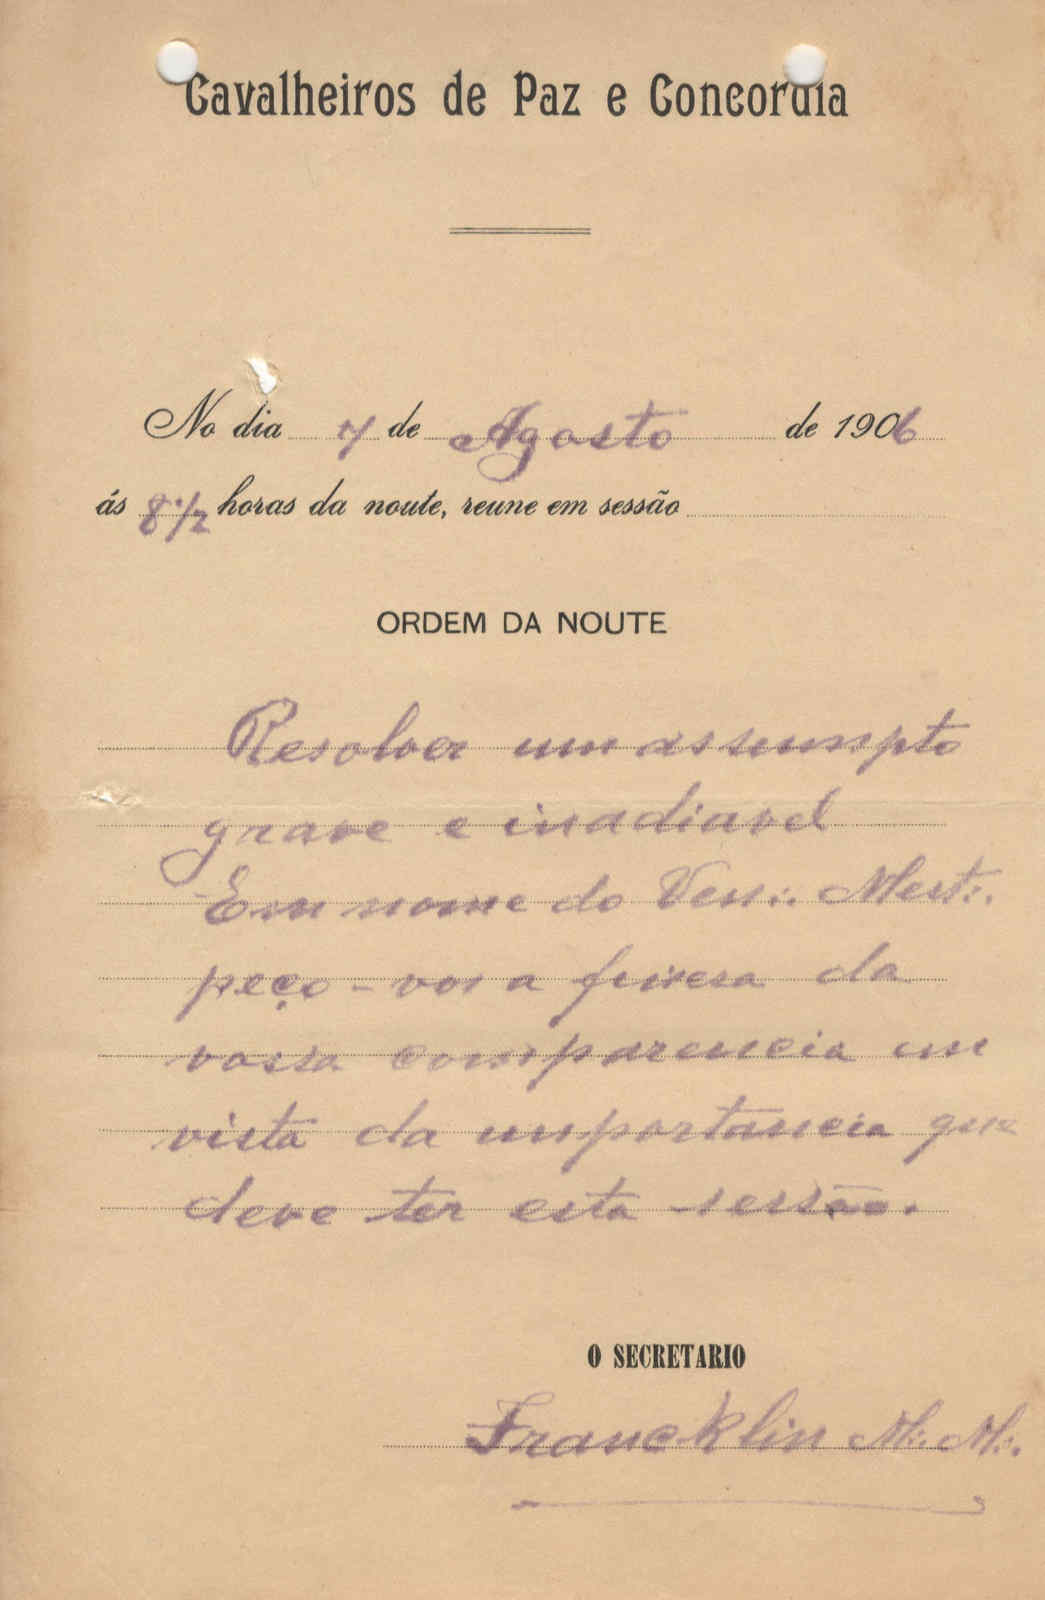 Cavalheiros de Paz e Concordia
No dia 7 de Agosto de 1906
ás 8 1/2 horas da noute, reune em sessão
ORDEM DA NOUTE
Resolver um assumpto
grave e inadiavel
Em nome do Ven∴ Mest∴
peço-vos a fineza da
vossa comparencia em
vista da importancia que
deve ter esta sessão.
O SECRETARIO
Francklin M∴ M∴